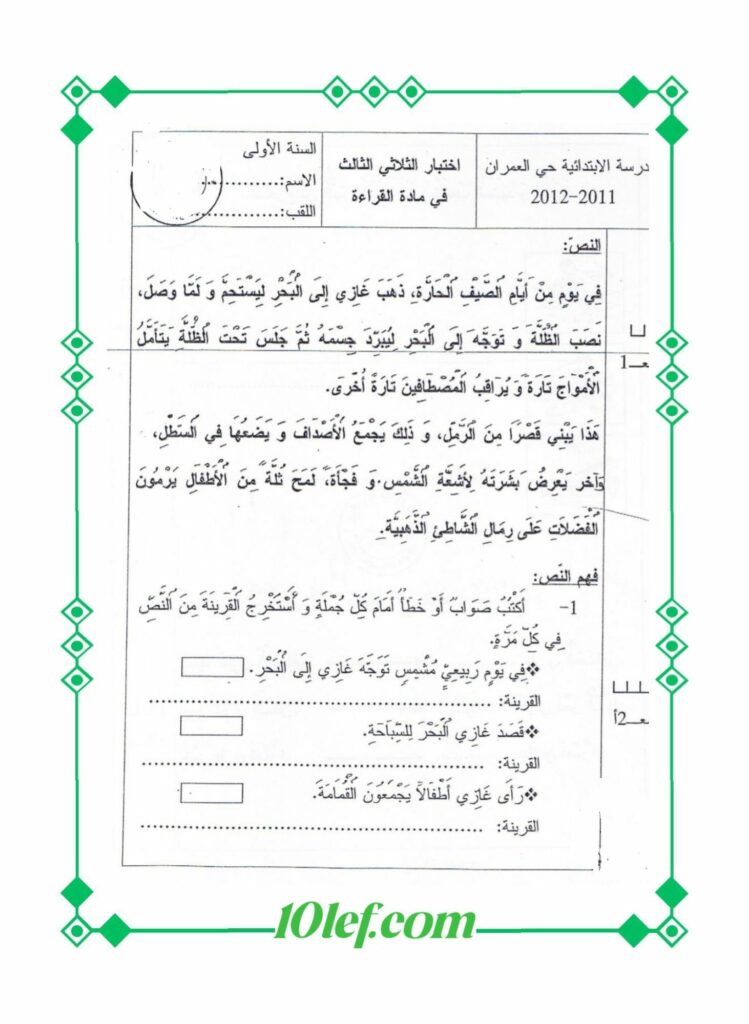 درسة الابتدائية حي العمران
2011-2012
اختبار الثلاثي الثالث
في مادة القراءة
السنة الأولى
الاسم:............
اللقب:..............
النصّ:
فِي يَوْمٍ مِنْ أَيَّامِ الصَّيْفِ الْحَارَّةِ، ذَهَبَ غَازِي إِلَى الْبَحْرِ لِيَسْتَحِمَّ وَ لَمَّا وَصَلَ،
نَصَبَ الظُّلَّةَ وَ تَوَجَّهَ إِلَى الْبَحْرِ لِيُبَرِّدَ جِسْمَهُ ثُمَّ جَلَسَ تَحْتَ الظُّلَّةِ يَتَأَمَّلُ
الْأَمْوَاجَ تَارَةً وَ يُرَاقِبُ الْمُصْطَافِينَ تَارَةً أُخْرَى.
هَذَا يَبْنِي قَصْرًا مِنَ الرَّمْلِ، وَ ذَلِكَ يَجْمَعُ الْأَصْدَافَ وَ يَضَعُهَا فِي السَّطْلِ،
وَآخر يَعْرِضُ بَشَرَتَهُ لِأَشِعَّةِ الشَّمْسِ. وَ فَجْأَةً، لَمَحَ ثُلَّةً مِنَ الْأَطْفَالِ يَرْمُونَ
الْفَضَلَاتِ عَلَى رِمَالِ الشَّاطِئِ الذَّهَبِيَّةِ.
فهم النّص:
1- أَكْتُبُ صَوَابٌ أَوْ خَطَأٌ أَمَامَ كُلِّ جُمْلَةٍ وَ أَسْتَخْرِجُ الْقَرِينَةَ مِنَ النَّصِّ
فِي كُلِّ مَرَّةٍ.
❖فِي يَوْمٍ رَبِيعِيٍّ مُشْمِسٍ تَوَجَّهَ غَازِي إِلَى الْبَحْرِ.
القرينة: ......................................................
❖قَصَدَ غَازِي الْبَحْرَ لِلسِّبَاحَةِ.
القرينة: ......................................................
❖رَأَى غَازِي أَطْفَالًا يَجْمَعُونَ الْقُمَامَةَ.
القرينة: ......................................................
معـ1
معـ2أ
10lef.com